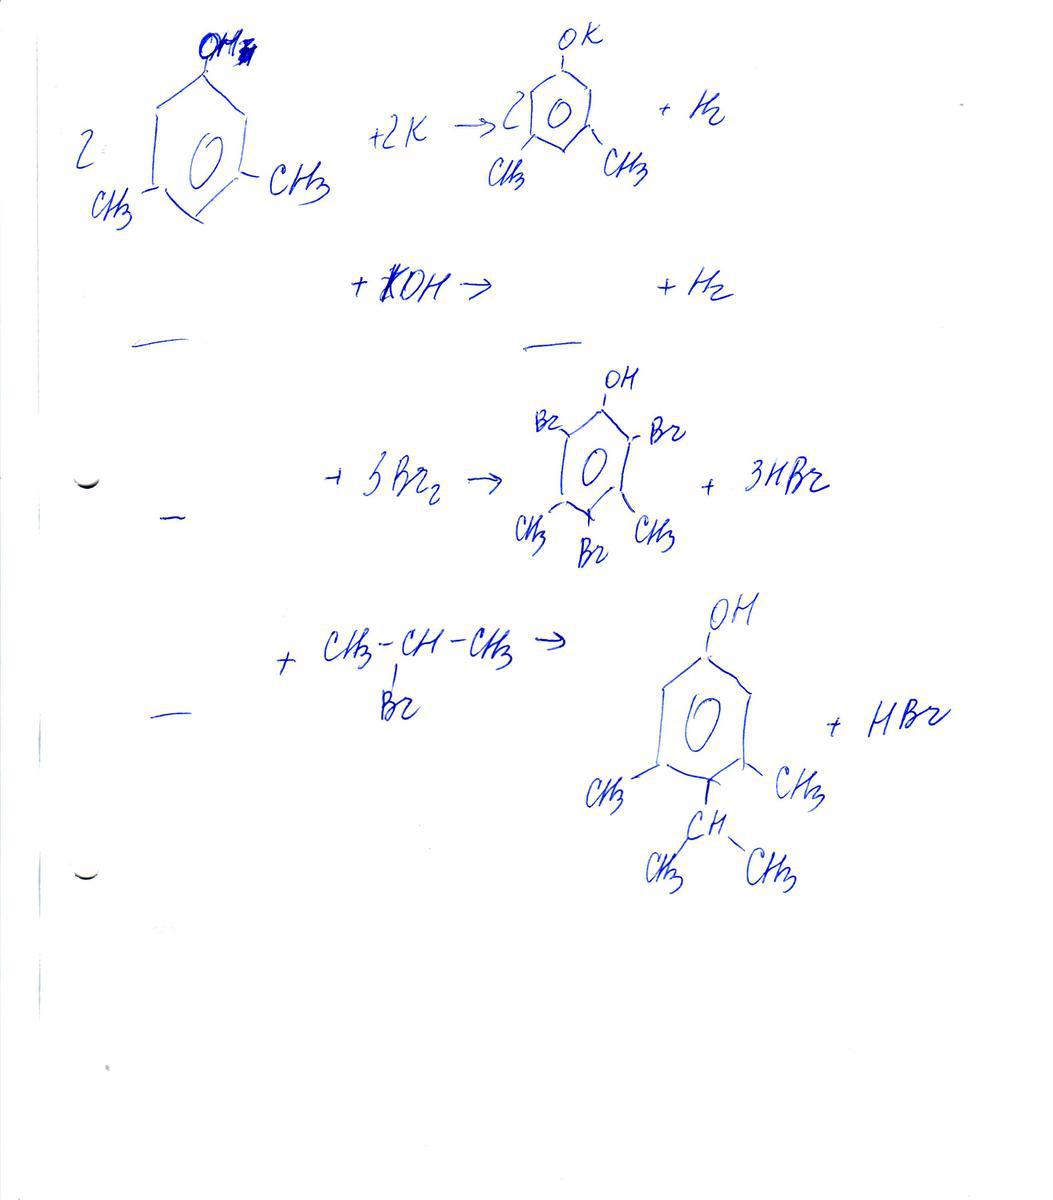 OH OK
2 +2K → 2 + H₂
CH₃ CH₃ CH₃ CH₃
+ KOH → + H₂
— —
OH
Br Br
+ 3Br₂ → + 3HBr
— CH₃ CH₃
Br
OH
+ CH₃-CH-CH₃ →
— Br + HBr
CH₃ CH₃
CH
CH₃ CH₃